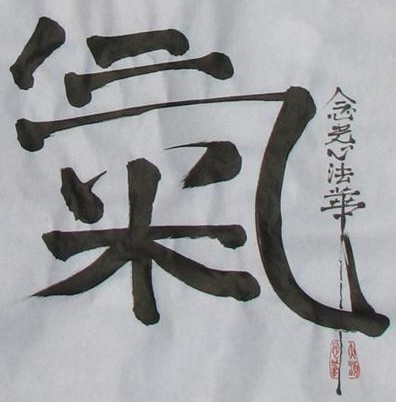 氣
念老心法華